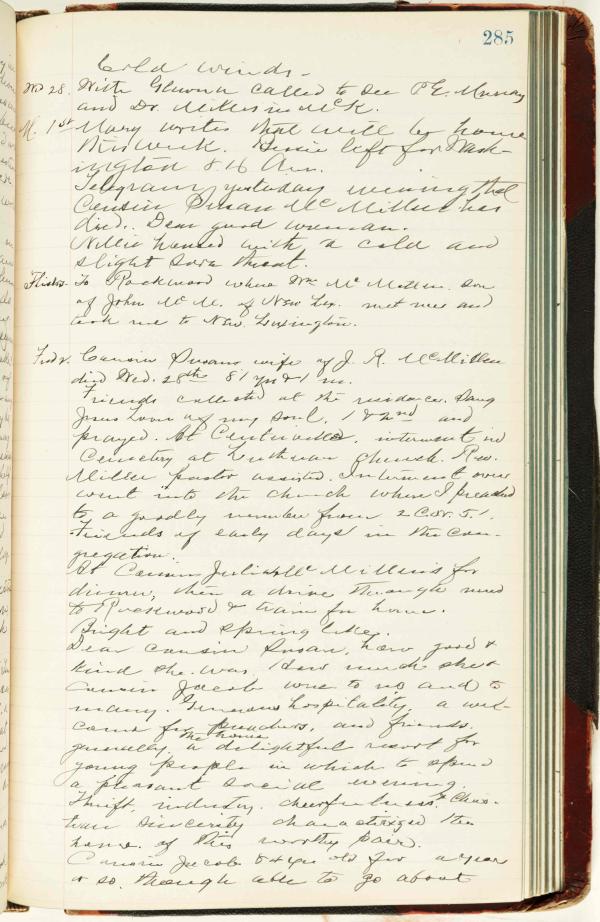 285
Cold winds.
Wd 28. With called to see P. E. Murray
and Dr. Miller in McK.
M. 1st Mary writes that will be home
this week. Bessie left for Wash-
ington 8.16 Am.
Telegram yesterday evening that
Cousin Susan McMillen has
died. Dear good woman.
Nellie housed with a cold and
slight sore throat.
To Rockwood where Wm McMillen son
of John McM. of New Lex. met me and
took me to New Lexington.
Frid 2. Cousin Susan wife of J. R. McMillen
died Wed. 28th 81 yrs & 1 m.
Friends collected at the residence. Sang
Jesus Lover of my Soul, 1 & 2nd and
prayed. At Centerville, interment in
Cemetery at Lutheran Church. Rev.
Miller pastor assisted. Interment over
went into the church where I preached
to a goodly number from 2 Cor. 5.1.
Friends of early days in the con-
gregation.
At Cousin McMillen's for
dinner, then a drive through mud
to Rockwood & train for home.
Bright and spring like.
Dear cousin Susan, how good &
kind she was. How much she &
Cousin Jacob were to us and to
many. Generous hospitality, a wel-
come for preachers, and friends
generally. the home a delightful resort for
young people in which to spend
a pleasant social evening.
Thrift, industry, cheerfulness & Chris-
tian sincerity characterized the
home of this worthy pair.
Cousin Jacob 84 yrs old for a year
or so, though able to go about